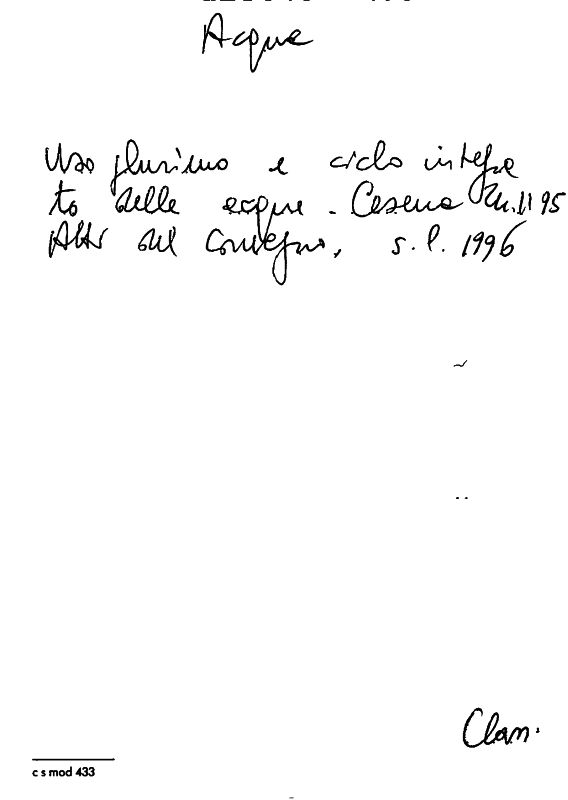 Acque
Uso plurimo e ciclo integra
to delle acque - Cesena 24.11 95
Atti del Convegno, s.l. 1996
Clan.
c s mod 433